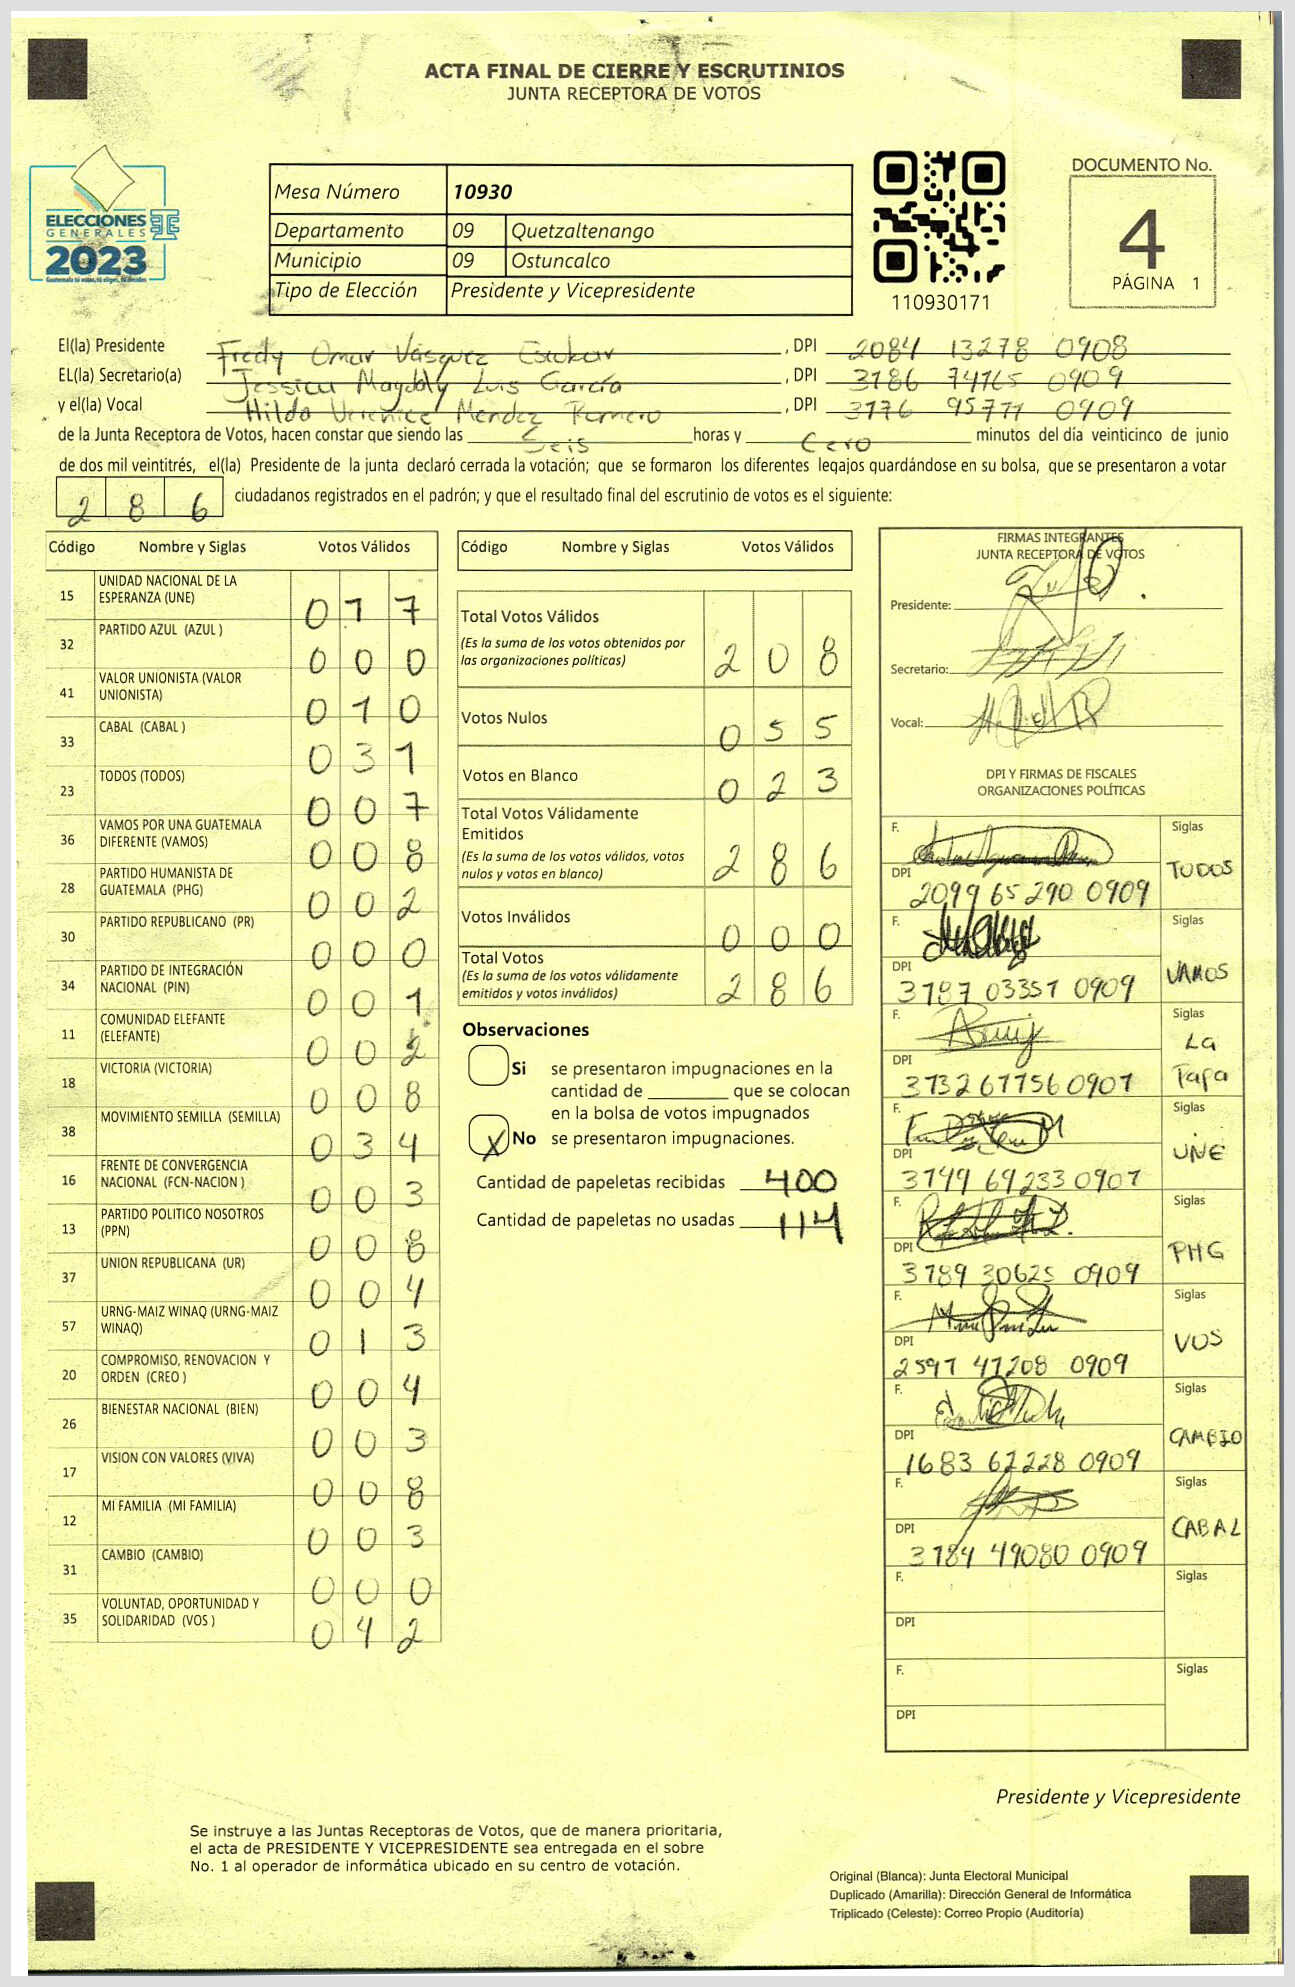 ACTA FINAL DE CIERRE Y ESCRUTINIOS
JUNTA RECEPTORA DE VOTOS
ELECCIONES
GENERALES
2023
Mesa Número 10930
Departamento 09 Quetzaltenango
Municipio 09 Ostuncalco
Tipo de Elección Presidente y Vicepresidente
110930171
DOCUMENTO No.
4
PÁGINA 1
El(la) Presidente Fredy Omar Vásquez Escobar, DPI 2084 13278 0908
EL(la) Secretario(a) Jessica Magdaly Luis García, DPI 3186 74165 0909
y el(la) Vocal Hilda Verenice Mendez Romero, DPI 3176 95771 0909
de la Junta Receptora de Votos, hacen constar que siendo las Seis horas y Cero minutos del día veinticinco de junio
de dos mil veintitrés, el(la) Presidente de la junta declaró cerrada la votación; que se formaron los diferentes legajos quardándose en su bolsa, que se presentaron a votar
286 ciudadanos registrados en el padrón; y que el resultado final del escrutinio de votos es el siguiente:
Código Nombre y Siglas Votos Válidos
15 UNIDAD NACIONAL DE LA ESPERANZA (UNE) 017
32 PARTIDO AZUL (AZUL ) 000
41 VALOR UNIONISTA (VALOR UNIONISTA) 010
33 CABAL (CABAL ) 031
23 TODOS (TODOS) 007
36 VAMOS POR UNA GUATEMALA DIFERENTE (VAMOS) 008
28 PARTIDO HUMANISTA DE GUATEMALA (PHG) 002
30 PARTIDO REPUBLICANO (PR) 000
34 PARTIDO DE INTEGRACIÓN NACIONAL (PIN) 001
11 COMUNIDAD ELEFANTE (ELEFANTE) 002
18 VICTORIA (VICTORIA) 008
38 MOVIMIENTO SEMILLA (SEMILLA) 034
16 FRENTE DE CONVERGENCIA NACIONAL (FCN-NACION ) 003
13 PARTIDO POLITICO NOSOTROS (PPN) 008
37 UNION REPUBLICANA (UR) 004
57 URNG-MAIZ WINAQ (URNG-MAIZ WINAQ) 013
20 COMPROMISO, RENOVACION Y ORDEN (CREO ) 004
26 BIENESTAR NACIONAL (BIEN) 003
17 VISION CON VALORES (VIVA) 008
12 MI FAMILIA (MI FAMILIA) 003
31 CAMBIO (CAMBIO) 000
35 VOLUNTAD, OPORTUNIDAD Y SOLIDARIDAD (VOS ) 042
Código Nombre y Siglas Votos Válidos
Total Votos Válidos 208
(Es la suma de los votos obtenidos por
las organizaciones políticas)
Votos Nulos 055
Votos en Blanco 023
Total Votos Válidamente
Emitidos 286
(Es la suma de los votos válidos, votos
nulos y votos en blanco)
Votos Inválidos 000
Total Votos 286
(Es la suma de los votos válidamente
emitidos y votos inválidos)
Observaciones
Si se presentaron impugnaciones en la
cantidad de ________ que se colocan
en la bolsa de votos impugnados
X No se presentaron impugnaciones.
Cantidad de papeletas recibidas 400
Cantidad de papeletas no usadas 114
FIRMAS INTEGRANTES
JUNTA RECEPTORA DE VOTOS
Presidente:
Secretario:
Vocal:
DPI Y FIRMAS DE FISCALES
ORGANIZACIONES POLÍTICAS
F. Siglas
DPI 2099 65290 0909 TODOS
F. Siglas
DPI 3187 03357 0909 VAMOS
F. Siglas
DPI 3132 67756 0907 La Papa
F. Siglas
DPI 3149 69233 0907 UNE
F. Siglas
DPI 3189 30625 0909 PHG
F. Siglas
DPI 2597 47208 0909 VOS
F. Siglas
DPI 1683 62228 0909 CAMBIO
F. Siglas
DPI 3184 49080 0909 CABAL
F. Siglas
DPI
F. Siglas
DPI
Presidente y Vicepresidente
Se instruye a las Juntas Receptoras de Votos, que de manera prioritaria,
el acta de PRESIDENTE Y VICEPRESIDENTE sea entregada en el sobre
No. 1 al operador de informática ubicado en su centro de votación.
Original (Blanca): Junta Electoral Municipal
Duplicado (Amarilla): Dirección General de Informática
Triplicado (Celeste): Correo Propio (Auditoría)